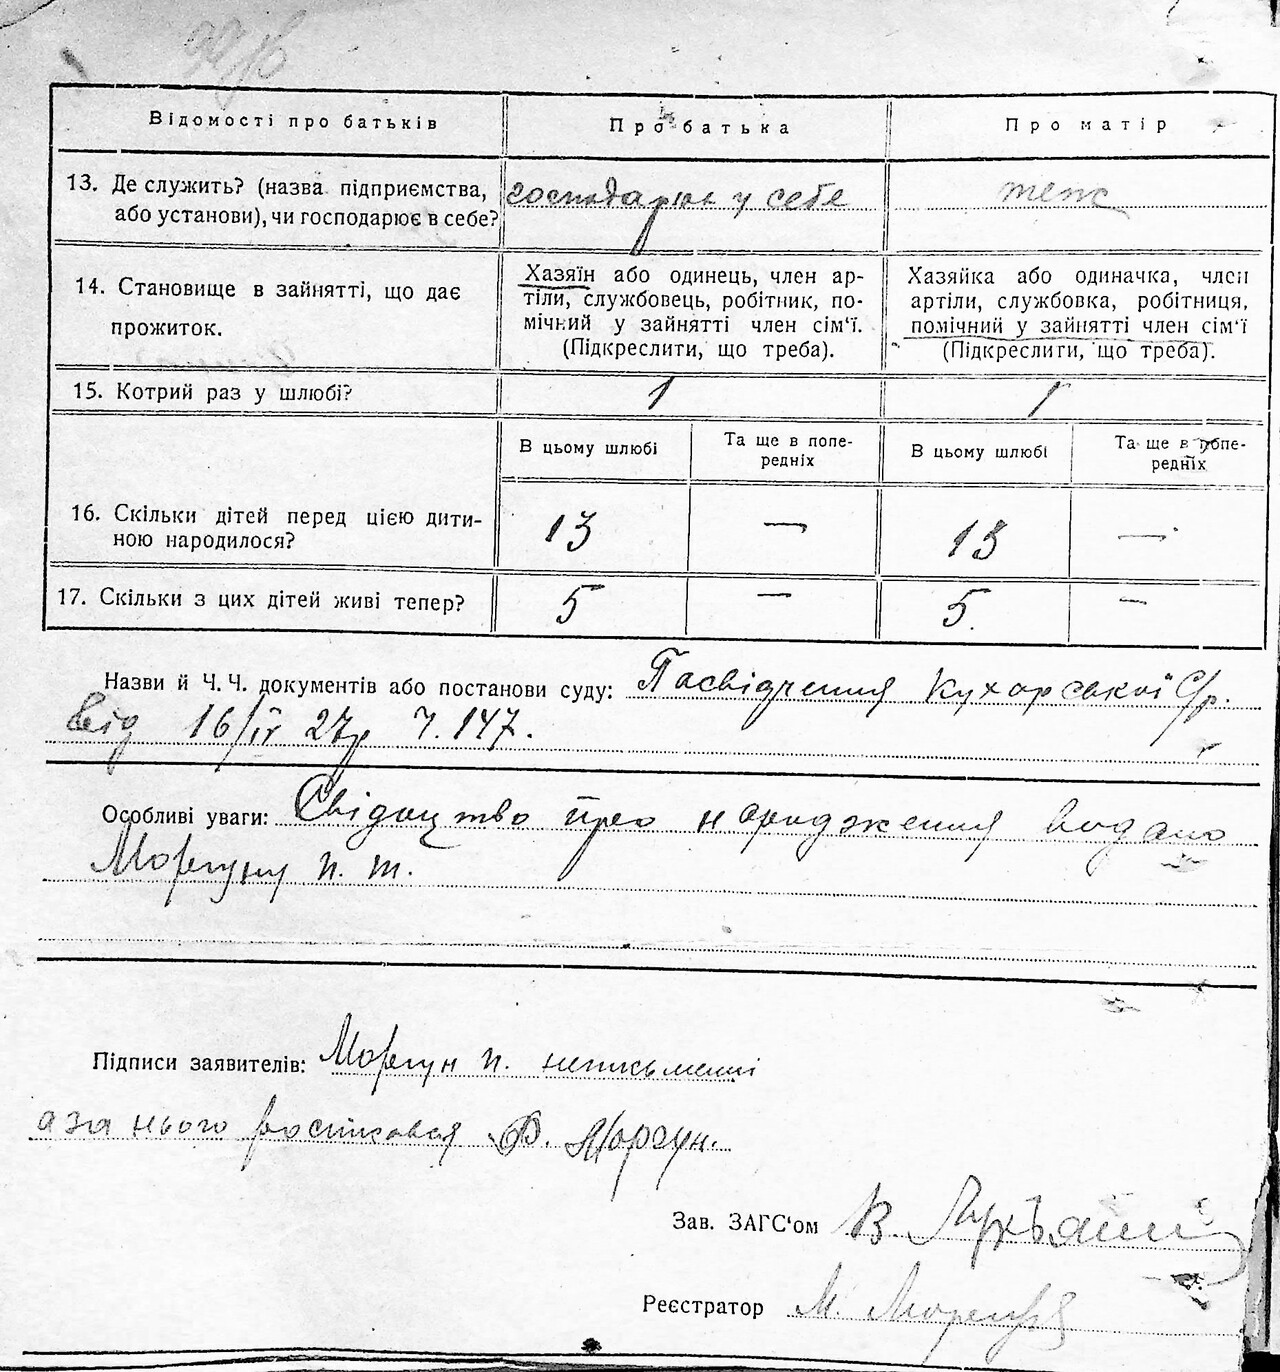 Відомості про батьків
Про батька
Про матір
13. Де служить? (назва підприємства, або установи), чи господарює в себе?
господарює у себе
теж
14. Становище в зайнятті, що дає прожиток.
Хазяїн або одинець, член ар-
тіли, службовець, робітник, по-
мічний у зайнятті член сім‘ї.
(Підкреслити, що треба).
Хазяйка або одиначка, член
артіли, службовка, робітниця,
помічний у зайнятті член сім‘ї
(Підкреслити, що треба).
15. Котрий раз у шлюбі?
1
1
В цьому шлюбі
Та ще в попе-
редніх
В цьому шлюбі
Та ще в попе-
редніх
16. Скільки дітей перед цією дити-
ною народилося?
13
—
13
—
17. Скільки з цих дітей живі тепер?
5
—
5.
—
Назви й Ч. Ч. документів або постанови суду: Посвідчення Кухарської С/р.
від 16/IV 27р Ч. 147.
Особливі уваги: Свідоцтво про народження видано
Моргуну П. Т.
Підписи заявителів: Моргун П. неписьменні
а за нього росписався Ф. Моргун.
Зав. ЗАГС‘ом В.
Реєстратор М.